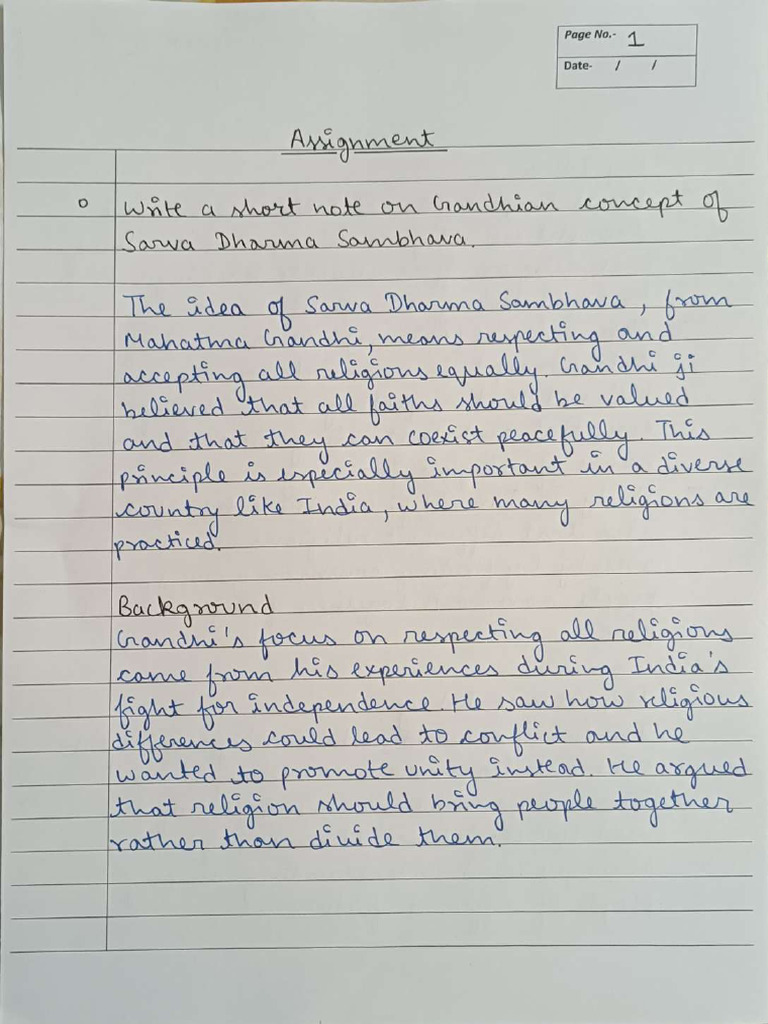 Page No.- 1
Date- / /
Assignment
Write a short note on Gandhian concept of
Sarva Dharma Sambhava.
The idea of Sarva Dharma Sambhava, from
Mahatma Gandhi, means respecting and
accepting all religions equally. Gandhi ji
believed that all faiths should be valued
and that they can coexist peacefully. This
principle is especially important in a diverse
country like India, where many religions are
practiced.
Background
Gandhi's focus on respecting all religions
came from his experiences during India's
fight for independence. He saw how religious
differences could lead to conflict and he
wanted to promote unity instead. He argued
that religion should bring people together
rather than divide them.